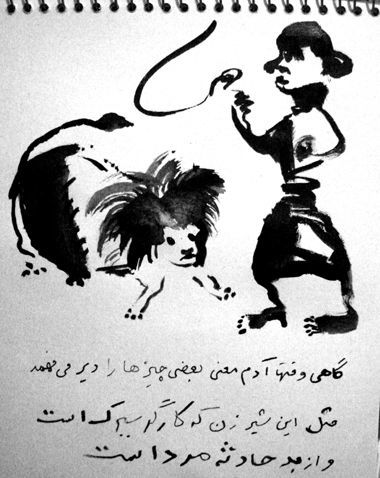 گاهی وقتها آدم معنی بعضی چیزها را دیر می فهمد
مثل این شیر زن که کارگر سیرک است
و از بد حادثه مرد است